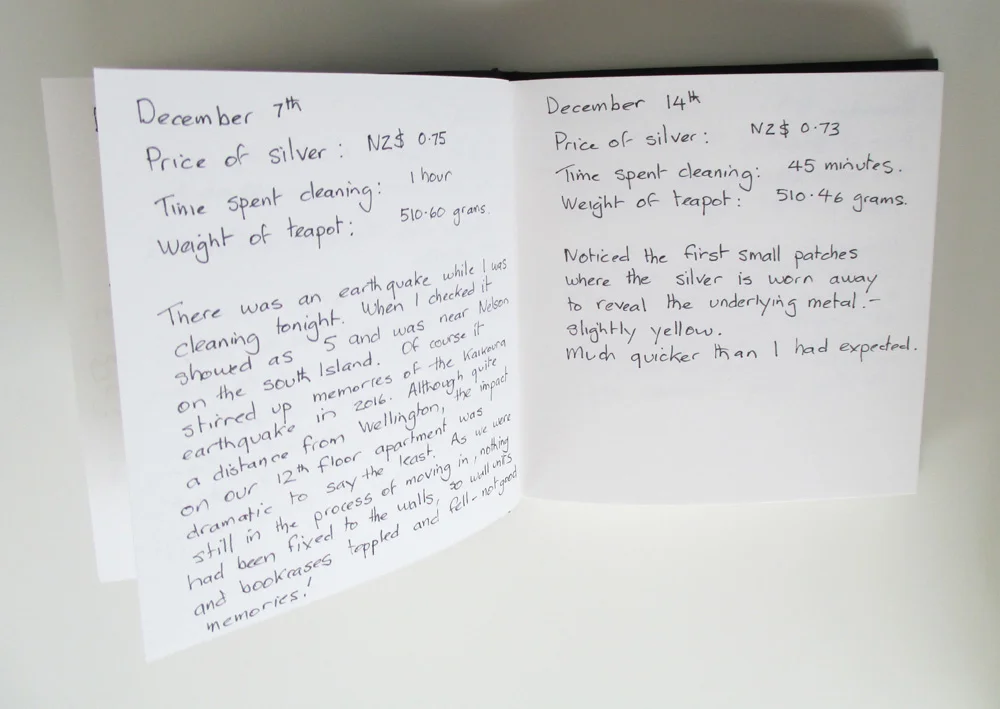 December 7th
Price of silver: NZ$ 0.75
Time spent cleaning: 1 hour
Weight of teapot: 510.60 grams.
There was an earthquake while I was
cleaning tonight. When I checked it
showed as 5 and was near Nelson
on the South Island. Of course it
stirred up memories of the Kaikoura
earthquake in 2016. Although quite
a distance from Wellington, the impact
on our 12th floor apartment was
dramatic to say the least. As we were
still in the process of moving in, nothing
had been fixed to the walls, so wall units
and bookcases toppled and fell - not good
memories!
December 14th
Price of silver: NZ$ 0.73
Time spent cleaning: 45 minutes.
Weight of teapot: 510.46 grams.
Noticed the first small patches
where the silver is worn away
to reveal the underlying metal: -
slightly yellow.
Much quicker than I had expected.